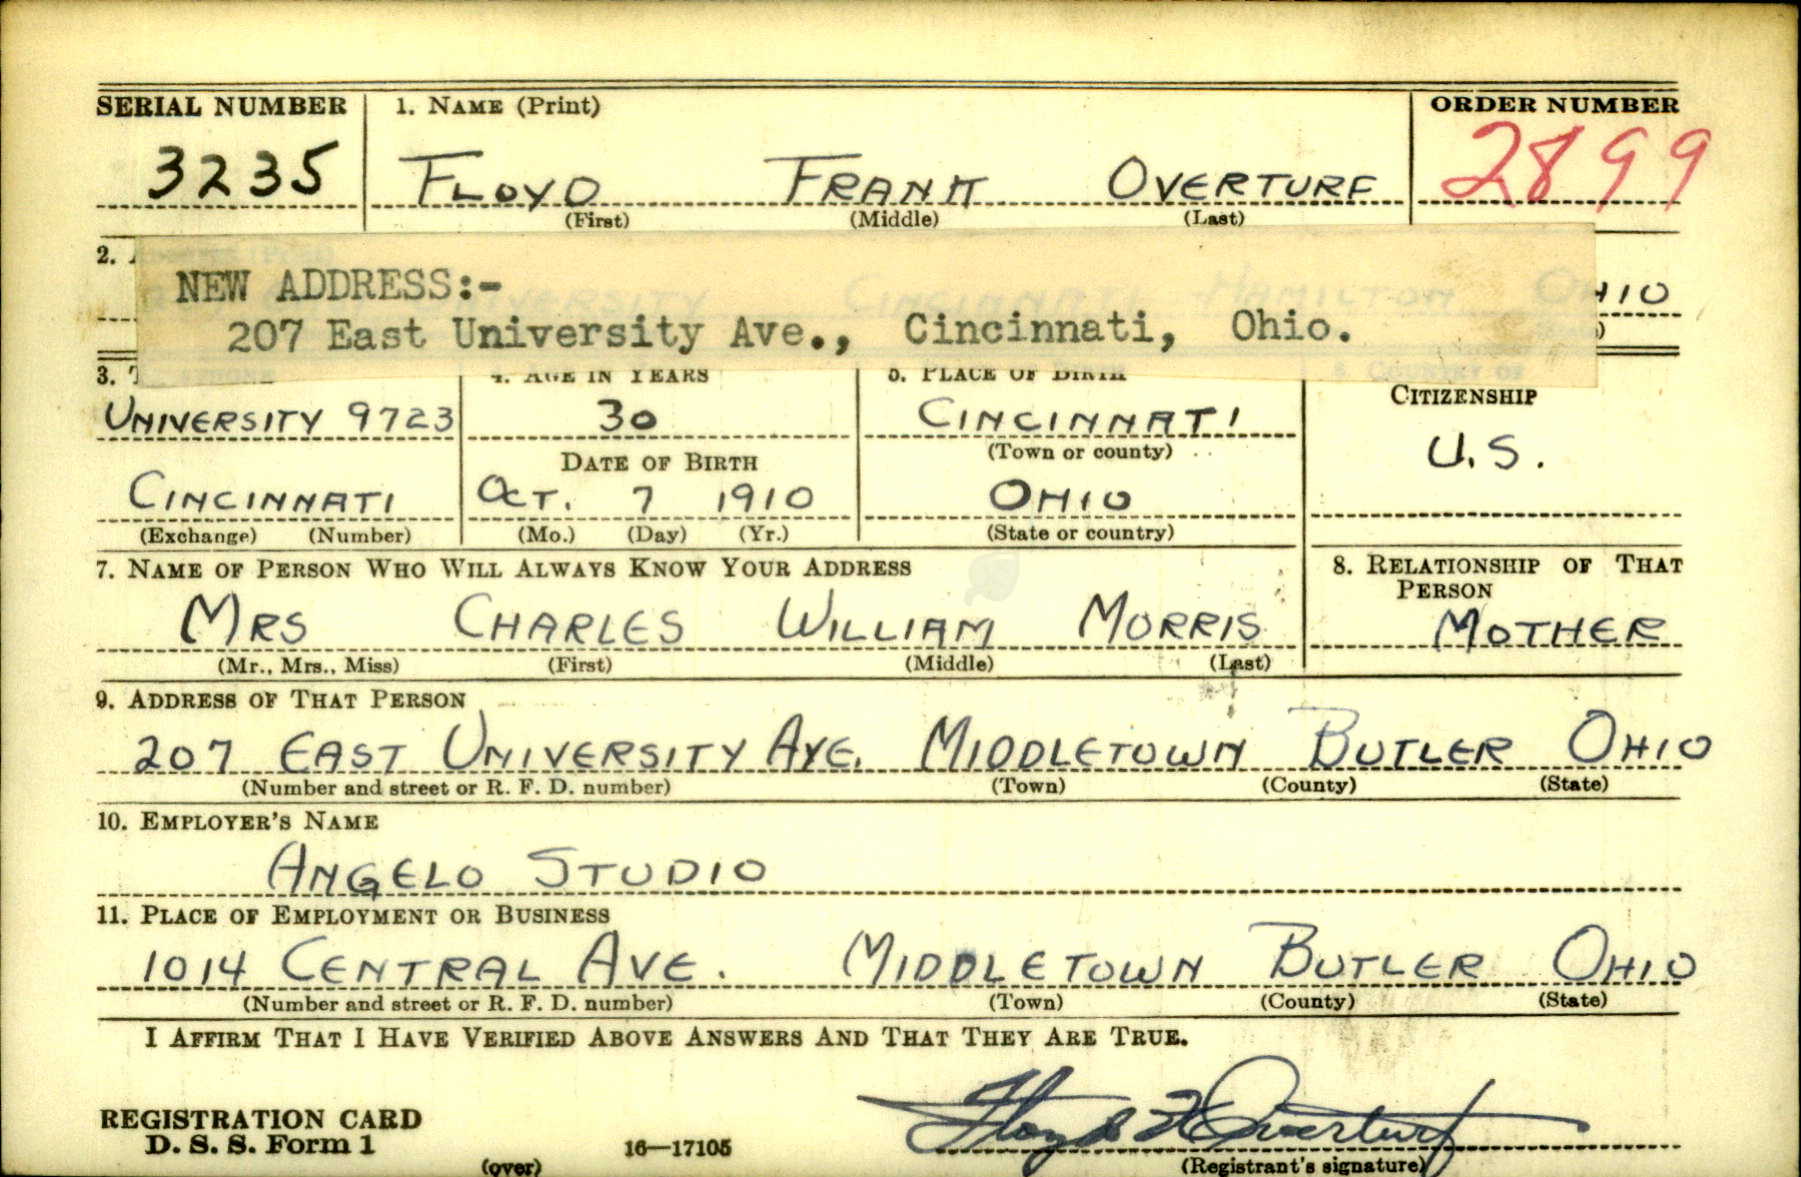 SERIAL NUMBER 1. NAME (Print) ORDER NUMBER
3235 FLOYD FRANK OVERTURF 2899
(First) (Middle) (Last)
2.
NEW ADDRESS:-
UNIVERSITY CINCINNATI HAMILTON OHIO
207 East University Ave., Cincinnati, Ohio.
3. 4. AGE IN YEARS 5. PLACE OF BIRTH 6. COUNTRY OF
CITIZENSHIP
UNIVERSITY 9723 30 CINCINNATI U.S.
DATE OF BIRTH (Town or county)
CINCINNATI OCT. 7 1910 OHIO
(Exchange) (Number) (Mo.) (Day) (Yr.) (State or country)
7. NAME OF PERSON WHO WILL ALWAYS KNOW YOUR ADDRESS 8. RELATIONSHIP OF THAT
PERSON
MRS CHARLES WILLIAM MORRIS MOTHER
(Mr., Mrs., Miss) (First) (Middle) (Last)
9. ADDRESS OF THAT PERSON
207 EAST UNIVERSITY AVE. MIDDLETOWN BUTLER OHIO
(Number and street or R. F. D. number) (Town) (County) (State)
10. EMPLOYER'S NAME
ANGELO STUDIO
11. PLACE OF EMPLOYMENT OR BUSINESS
1014 CENTRAL AVE. MIDDLETOWN BUTLER OHIO
(Number and street or R. F. D. number) (Town) (County) (State)
I AFFIRM THAT I HAVE VERIFIED ABOVE ANSWERS AND THAT THEY ARE TRUE.
REGISTRATION CARD
D. S. S. Form 1 16—17105 Floyd F Overturf
(over) (Registrant's signature)